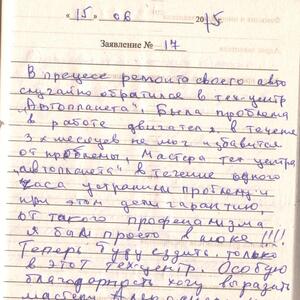 « 15 » 06 2015 г.
Заявление № 17
В процесе ремонта своего авто
случайно обратился в тех-центр
„Автопланета“. Была проблема
в работе двигателя, в течение
3х месяцев не мог избавится
от проблемы, Мастера тех центра
„автопланета“ в течение одного
часа устранили проблему и
при этом дали гарантию,
от такого профенализма
я был просто в шоке !!!!
Теперь буду ездить только
в этот тех-центр. Особую
благодарность хочу выразить
мастеру